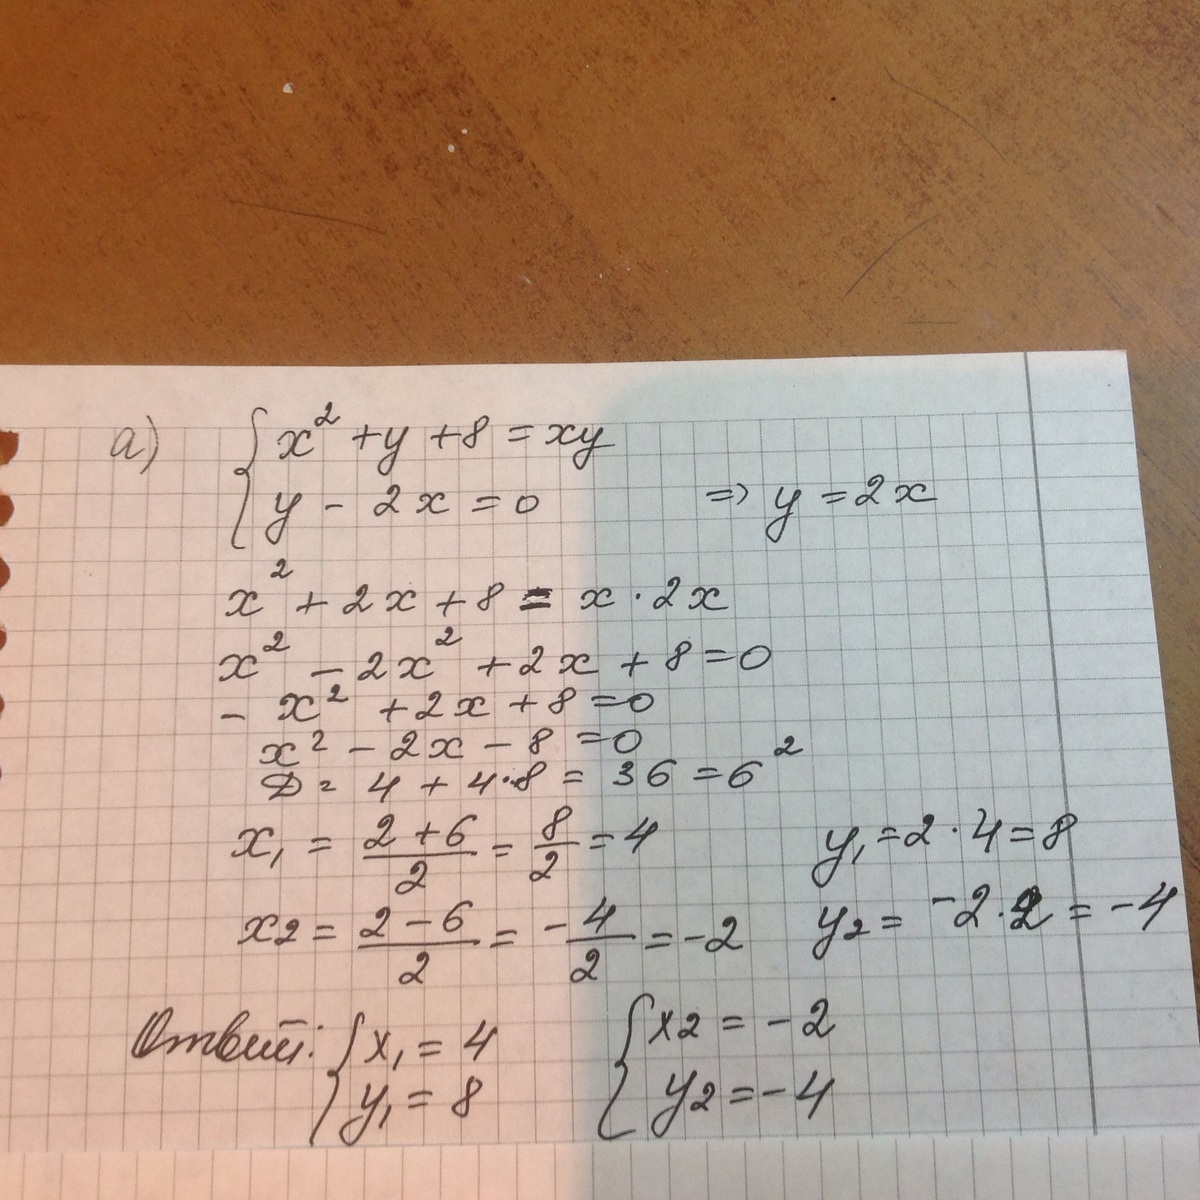 а) { x² + y + 8 = xy
{ y - 2x = 0 => y = 2x
x² + 2x + 8 = x · 2x
x² - 2x² + 2x + 8 = 0
- x² + 2x + 8 = 0
x² - 2x - 8 = 0
D = 4 + 4·8 = 36 = 6²
x₁ = (2 + 6)/2 = 8/2 = 4 y₁ = 2 · 4 = 8
x2 = (2 - 6)/2 = -4/2 = -2 y2 = -2 · 2 = -4
Ответ: { x₁ = 4 { x2 = -2
{ y₁ = 8 { y2 = -4